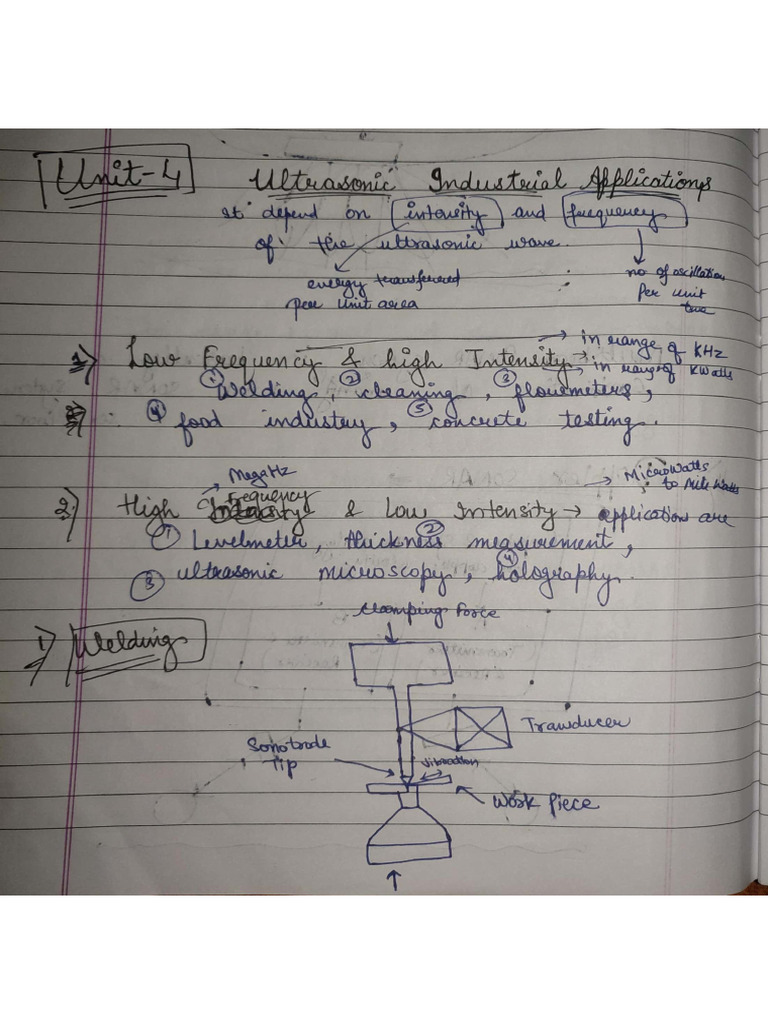 Unit-4
Ultrasonic Industrial Applications
It depend on intensity and frequency
of the ultrasonic wave.
energy transferred
per unit area
no of oscillation
per unit
→ in range of KHz
1) Low Frequency & high Intensity → in range of KWatts
① Welding, ② cleaning, ③ flowmeters,
④ food industry, ⑤ concrete testing.
→ MegaHz
→ MicroWatts
to Mile Watts
frequency
2) High & Low Intensity → application are
① Levelmeter, ② thickness measurement,
③ ultrasonic microscopy, ④ holography.
1) Welding
Clamping Force
Tranducer
Sonotrode
Tip
vibration
Work Piece